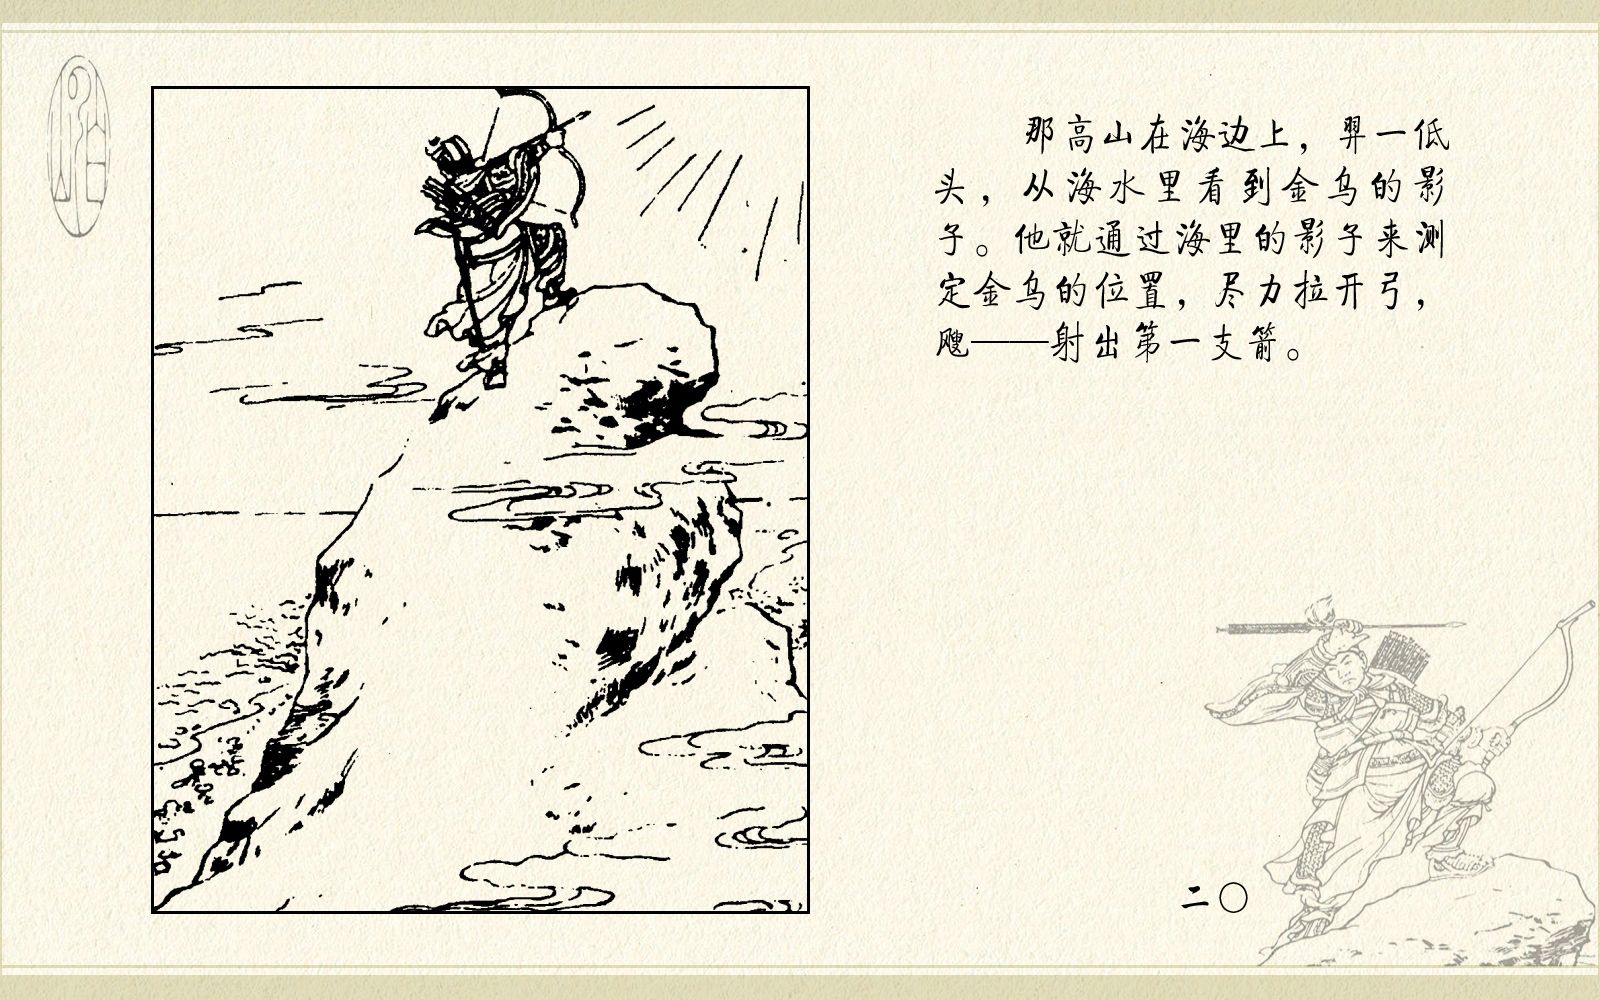 那高山在海边上，羿一低
头，从海水里看到金乌的影
子。他就通过海里的影子来测
定金乌的位置，尽力拉开弓，
飕——射出第一支箭。
二〇